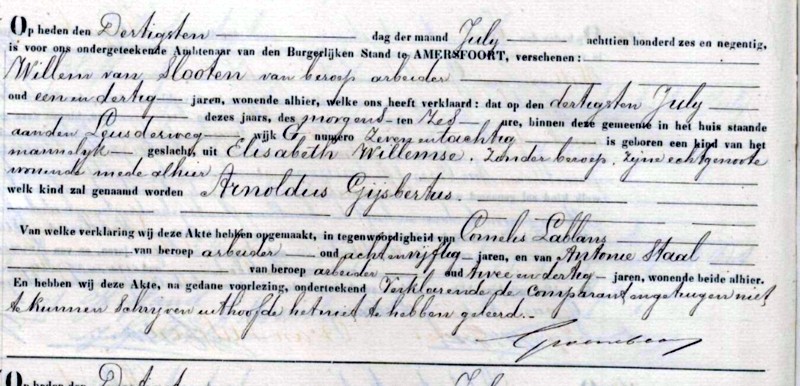 Op heden den Dertigsten dag der maand July achttien honderd zes en negentig,
is voor ons ondergeteekende Ambtenaar van den Burgerlijken Stand te AMERSFOORT, verschenen:
Willem van Slooten van beroep arbeider
oud een en dertig jaren, wonende alhier, welke ons heeft verklaard: dat op den dertigsten July
dezes jaars, des morgens ten Zes ure, binnen deze gemeente in het huis staande
aan den Leusderweg wijk G numero Zeven en tachtig is geboren een kind van het
mannelyk geslacht, uit Elisabeth Willemse. Zonder beroep. Zyne echtgenoote
wonende mede alhier
welk kind zal genaamd worden Arnoldus Gijsbertus.
Van welke verklaring wij deze Akte hebben opgemaakt, in tegenwoordigheid van Cornelis Lablans
van beroep arbeider oud acht en vijftig jaren, en van Antonie Staal
van beroep arbeider oud twee en dertig jaren, wonende beide alhier.
En hebben wij deze Akte, na gedane voorlezing, onderteekend Verklarende de comparant en getuigen niet
te kunnen schrijven uit hoofde het niet te hebben geleerd.
Op heden den Dertigsten July